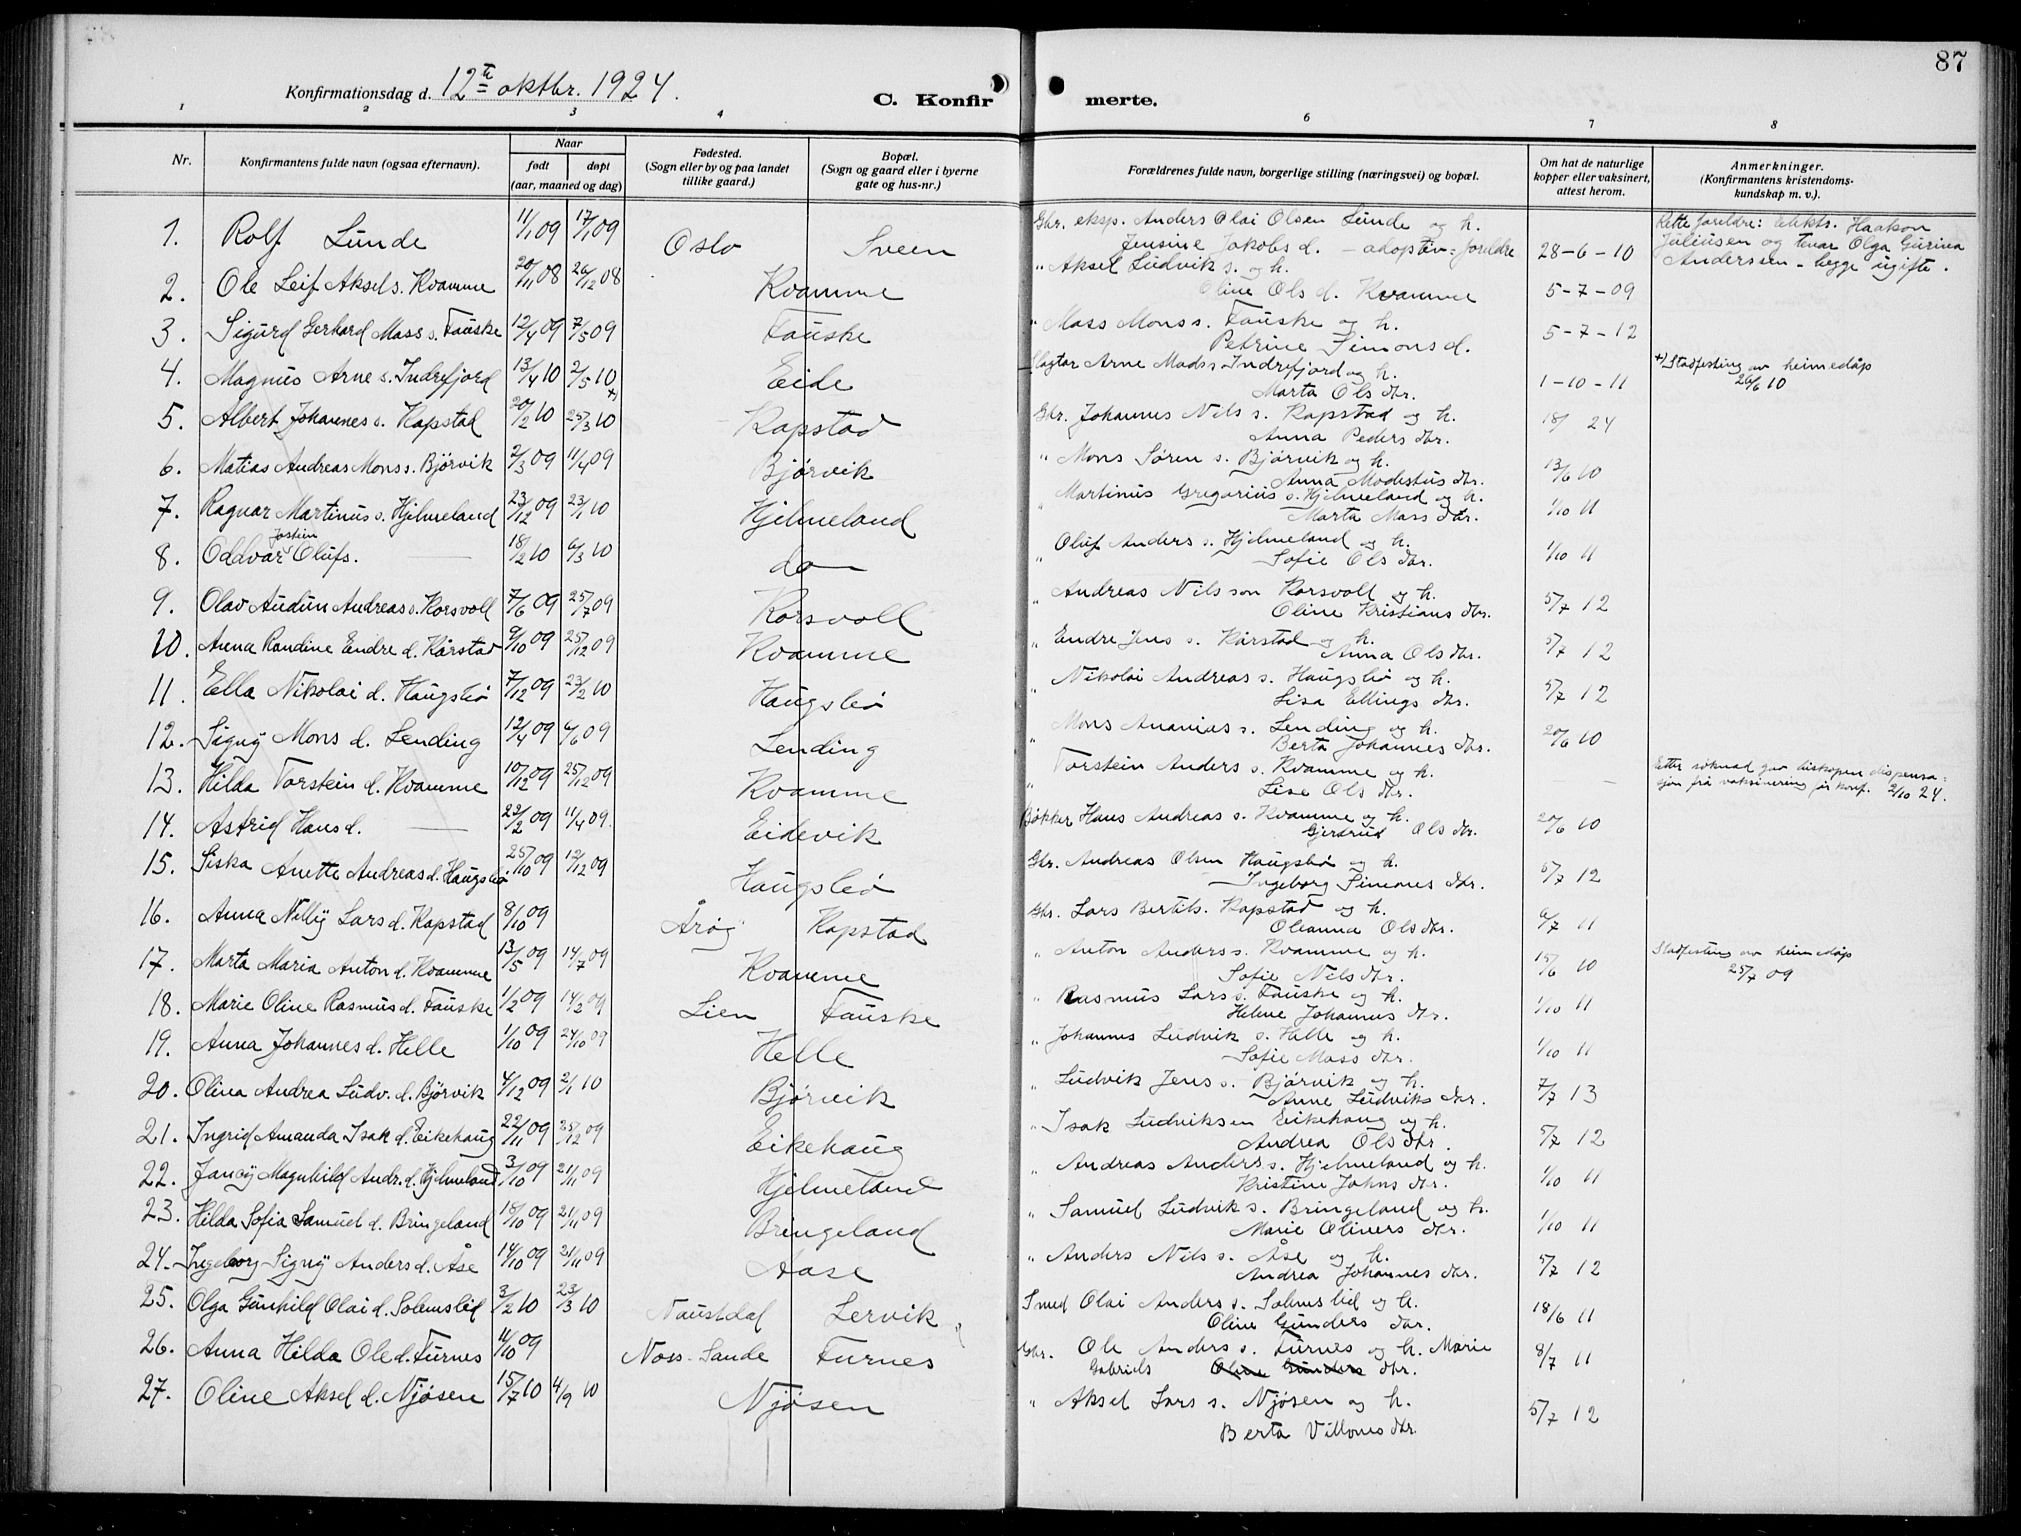 87
Konfirmationsdag d. 12te oktbr. 1924.
C. Konfirmerte.
1 2 3 4 6 7 8
Nr.
Konfirmantens fulde navn (ogsaa efternavn).
Naar
født
døpt
(aar, maaned og dag)
Fødested.
(Sogn eller by og paa landet
tillike gaard.)
Bopæl.
(Sogn og gaard eller i byerne
gate og hus-nr.)
Forældrenes fulde navn, borgerlige stilling (næringsvei) og bopæl.
Om hat de naturlige
kopper eller vaksinert,
attest herom.
Anmerkninger.
(Konfirmantens kristendoms-
kundskap m. v.).
1. Rolf Lunde 11/1 09 17/1 09 Oslo Sveen Gbr. eksp. Anders Olai Olsen Lunde og h.
Jensine Jakobs d. - adoptiv-foreldre 28-6-10
Rette foreldre: elekts. Haakon
Juliusen og tenar Olga Gurina
Anderssen - begge ugifte.
2. Ole Leif Aksel s. Kvamme 20/11 08 26/12 08 Kvamme " Aksel Ludvik s. og h.
Oline Ols d. Kvamme 5-7-09
3. Sigurd Gerhard Mass s. Fauske 12/4 09 7/5 09 Fauske " Mass Mons s. Fauske og h.
Petrine Simons d. 5-7-12
4. Magnus Arne s. Indrefjord 13/4 10 2/5 10 +) Eide Slagtar Arne Mads s. Indrefjord og h.
Marta Ols dtr. 1-10-11
+) Stadfesting av heimedåp
26/6 10
5. Albert Johannes s. Kapstad 20/2 10 25/3 10 Kapstad Gbr. Johannes Nils s. Kapstad og h.
Anna Peders dtr. 18/ 24
6. Matias Andreas Mons s. Bjørvik 2/3 09 11/4 09 Bjørvik " Mons Søren s. Bjørvik og h.
Anna Modestus dtr. 13/6 10
7. Ragnar Martinus s. Hjelmeland 23/12 09 23/1 10 Hjelmeland " Martinus Gregorius s. Hjelmeland og h.
Marta Mass dtr. 1/10 11
8. Oddvar Jostein Olufs. — 18/2 10 6/3 10 do " Oluf Anders s. Hjelmeland og h.
Sofie Ols dtr. 1/10 11
9. Olav Audun Andreas s. Korsvoll 7/6 09 25/7 09 Korsvoll " Andreas Nilsson Korsvoll og h.
Oline Kristians dtr. 5/7 12
10. Anna Randine Endre d. Kårstad 9/10 09 25/12 09 Kvamme " Endre Jens s. Kårstad og h.
Anna Ols dtr. 5/7 12
11. Ella Nikolai d. Haugsbø 7/12 09 23/2 10 Haugsbø " Nikolai Andreas s. Haugsbø og h.
Lisa Ellings dtr. 5/7 12
12. Signy Mons d. Lending 12/4 09 6/6 09 Lending " Mons Ananias s. Lending og h.
Berta Johannes dtr. 20/6 10
13. Hilda Torstein d. Kvamme 10/12 09 25/12 09 Kvamme " Torstein Anders s. Kvamme og h.
Lise Ols dtr. —
Etter søknad gav biskopen dispensa-
sjon frå vaksinering før konf. 2/10 24.
14. Astrid Hans d. — 22/2 09 11/4 09. Eidevik Bøkker Hans Andreas s. Kvamme og h.
Gjertrud Ols dtr. 20/6 10
15. Siska Anette Andreas d. Haugsbø 25/10 09 12/12 09 Haugsbø Gbr. Andreas Olsen Haugsbø og h.
Ingeborg Simons dtr. 5/7 12
16. Anna Nelly Lars d. Kapstad 8/10 09 Årøy Kapstad Gbr. Lars Bertils. Kapstad og h.
Oleanna Ols dtr. 6/7 11
17. Marta Maria Anton d. Kvamme 13/5 09 14/7 09 Kvamme " Anton Anders s. Kvamme og h.
Sofie Nils dtr. 15/6 10
Stadfesting av heimedåp
25/7 09
18. Marie Oline Rasmus d. Fauske 1/2 09 14/2 09 Lien Fauske " Rasmus Lars s. Fauske og h.
Helene Johannes dtr. 1/10 11
19. Anna Johannes d. Helle 1/10 09 24/10 09 Helle " Johannes Ludvik s. Helle og h.
Sofie Mass dtr. 1/10 11
20. Olina Andrea Ludv. d. Bjørvik 4/12 09 2/1 10 Bjørvik " Ludvik Jens s. Bjørvik og h.
Anne Ludviks dtr. 7/7 13
21. Ingrid Amanda Isak d. Eikehaug 22/11 09 25/12 09 Eikehaug " Isak Ludviksen Eikehaug og h.
Andrea Ols dtr. 5/7 12
22. Jancy Magnhild Andr. d. Hjelmeland 3/10 09 21/11 09 Hjelmeland " Andreas Anders s. Hjelmeland og h.
Kristine Johns dtr. 1/10 11
23. Hilda Sofia Samuel d. Bringeland 18/10 09 21/11 09 Bringeland " Samuel Ludvik s. Bringeland og h.
Marie Olivers dtr. 1/10 11
24. Ingeborg Signy Anders d. Åse 14/10 09 21/11 09 Aase " Anders Nils s. Åse og h.
Andrea Johannes dtr. 5/7 12
25. Olga Gunhild Olai d. Solemslid 3/2 10 23/3 10 Naustdal Lervik Smed Olai Anders s. Solemslid og h.
Oline Gunders dtr. 18/6 11
26. Anna Hilda Ole d. Furnes 11/10 09 Noss-Sande Furnes Gbr. Ole Anders s. Furnes og h. Marie
Gabriels Oline Gunders dtr. 8/7 11
27. Oline Aksel d. Njøsen 15/7 10 4/9 10 Njøsen " Aksel Lars s. Njøsen og h.
Berta Villons dtr. 5/7 12